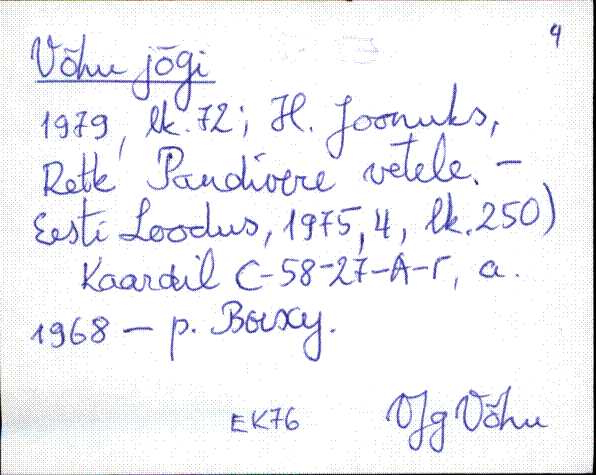 4
Võhu jõgi
1979, lk. 72; H. Joonuks,
Retk Pandivere vetele. —
Eesti Loodus, 1975, 4, lk. 250)
Kaardil C-58-27-A-г, a.
1968 — р. Выхху.
EK76
VJg Võhu